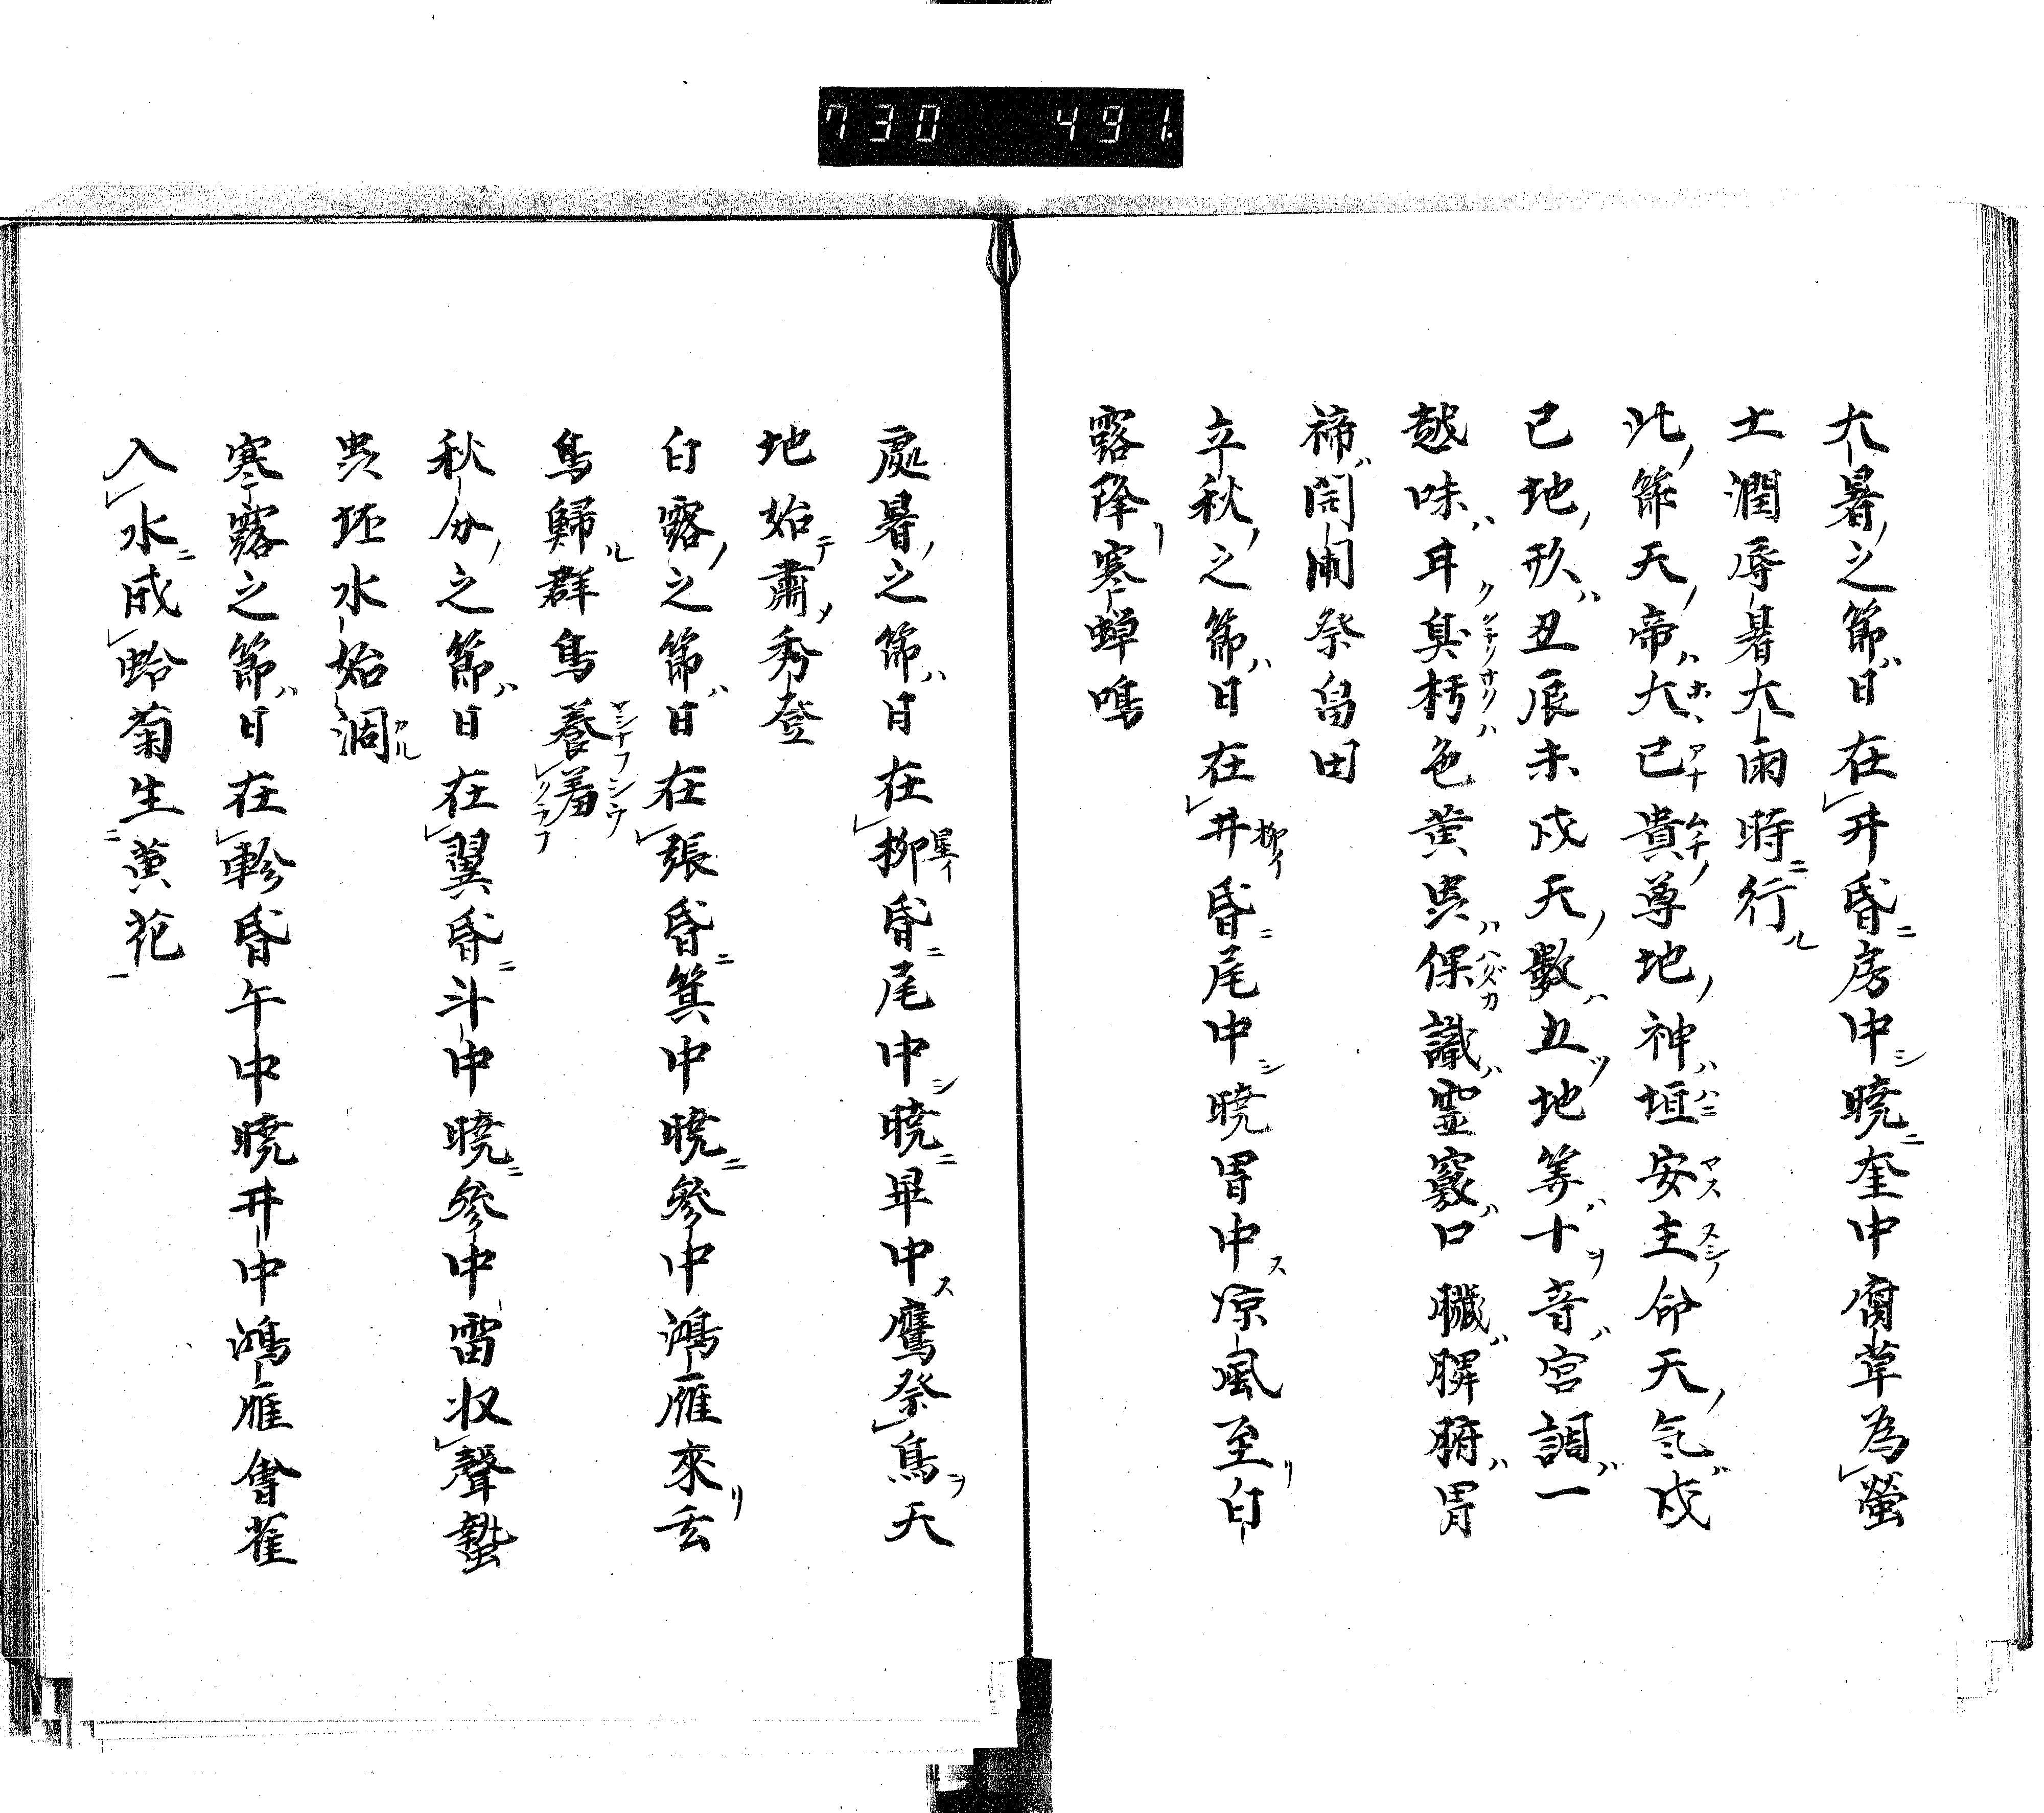 730 491.
大暑之節日在井昏房中暁奎中腐草為螢
土潤辱暑大雨時行
此節天帝大己貴尊地神埴安主命天気戊
己地形丑辰未戌天數五地筭十音宮調一
越味耳臭朽色黄虫倮識霊竅口臓脾腑胃
禘祭畠田
立秋之節日在井昏尾中暁胃中凉風至白
露降寒蝉鳴
處暑之節日在柳昏尾中暁畢中鷹祭鳥天
地始肅秀登
白露之節日在張昏箕中暁參中鴻雁來玄
鳥歸群鳥養羞
秋分之節日在翼昏斗中暁參中雷収聲蟄
虫坏水始涸
寒露之節日在軫昏午中暁井中鴻雁會雀
入水成蛤菊生黄花